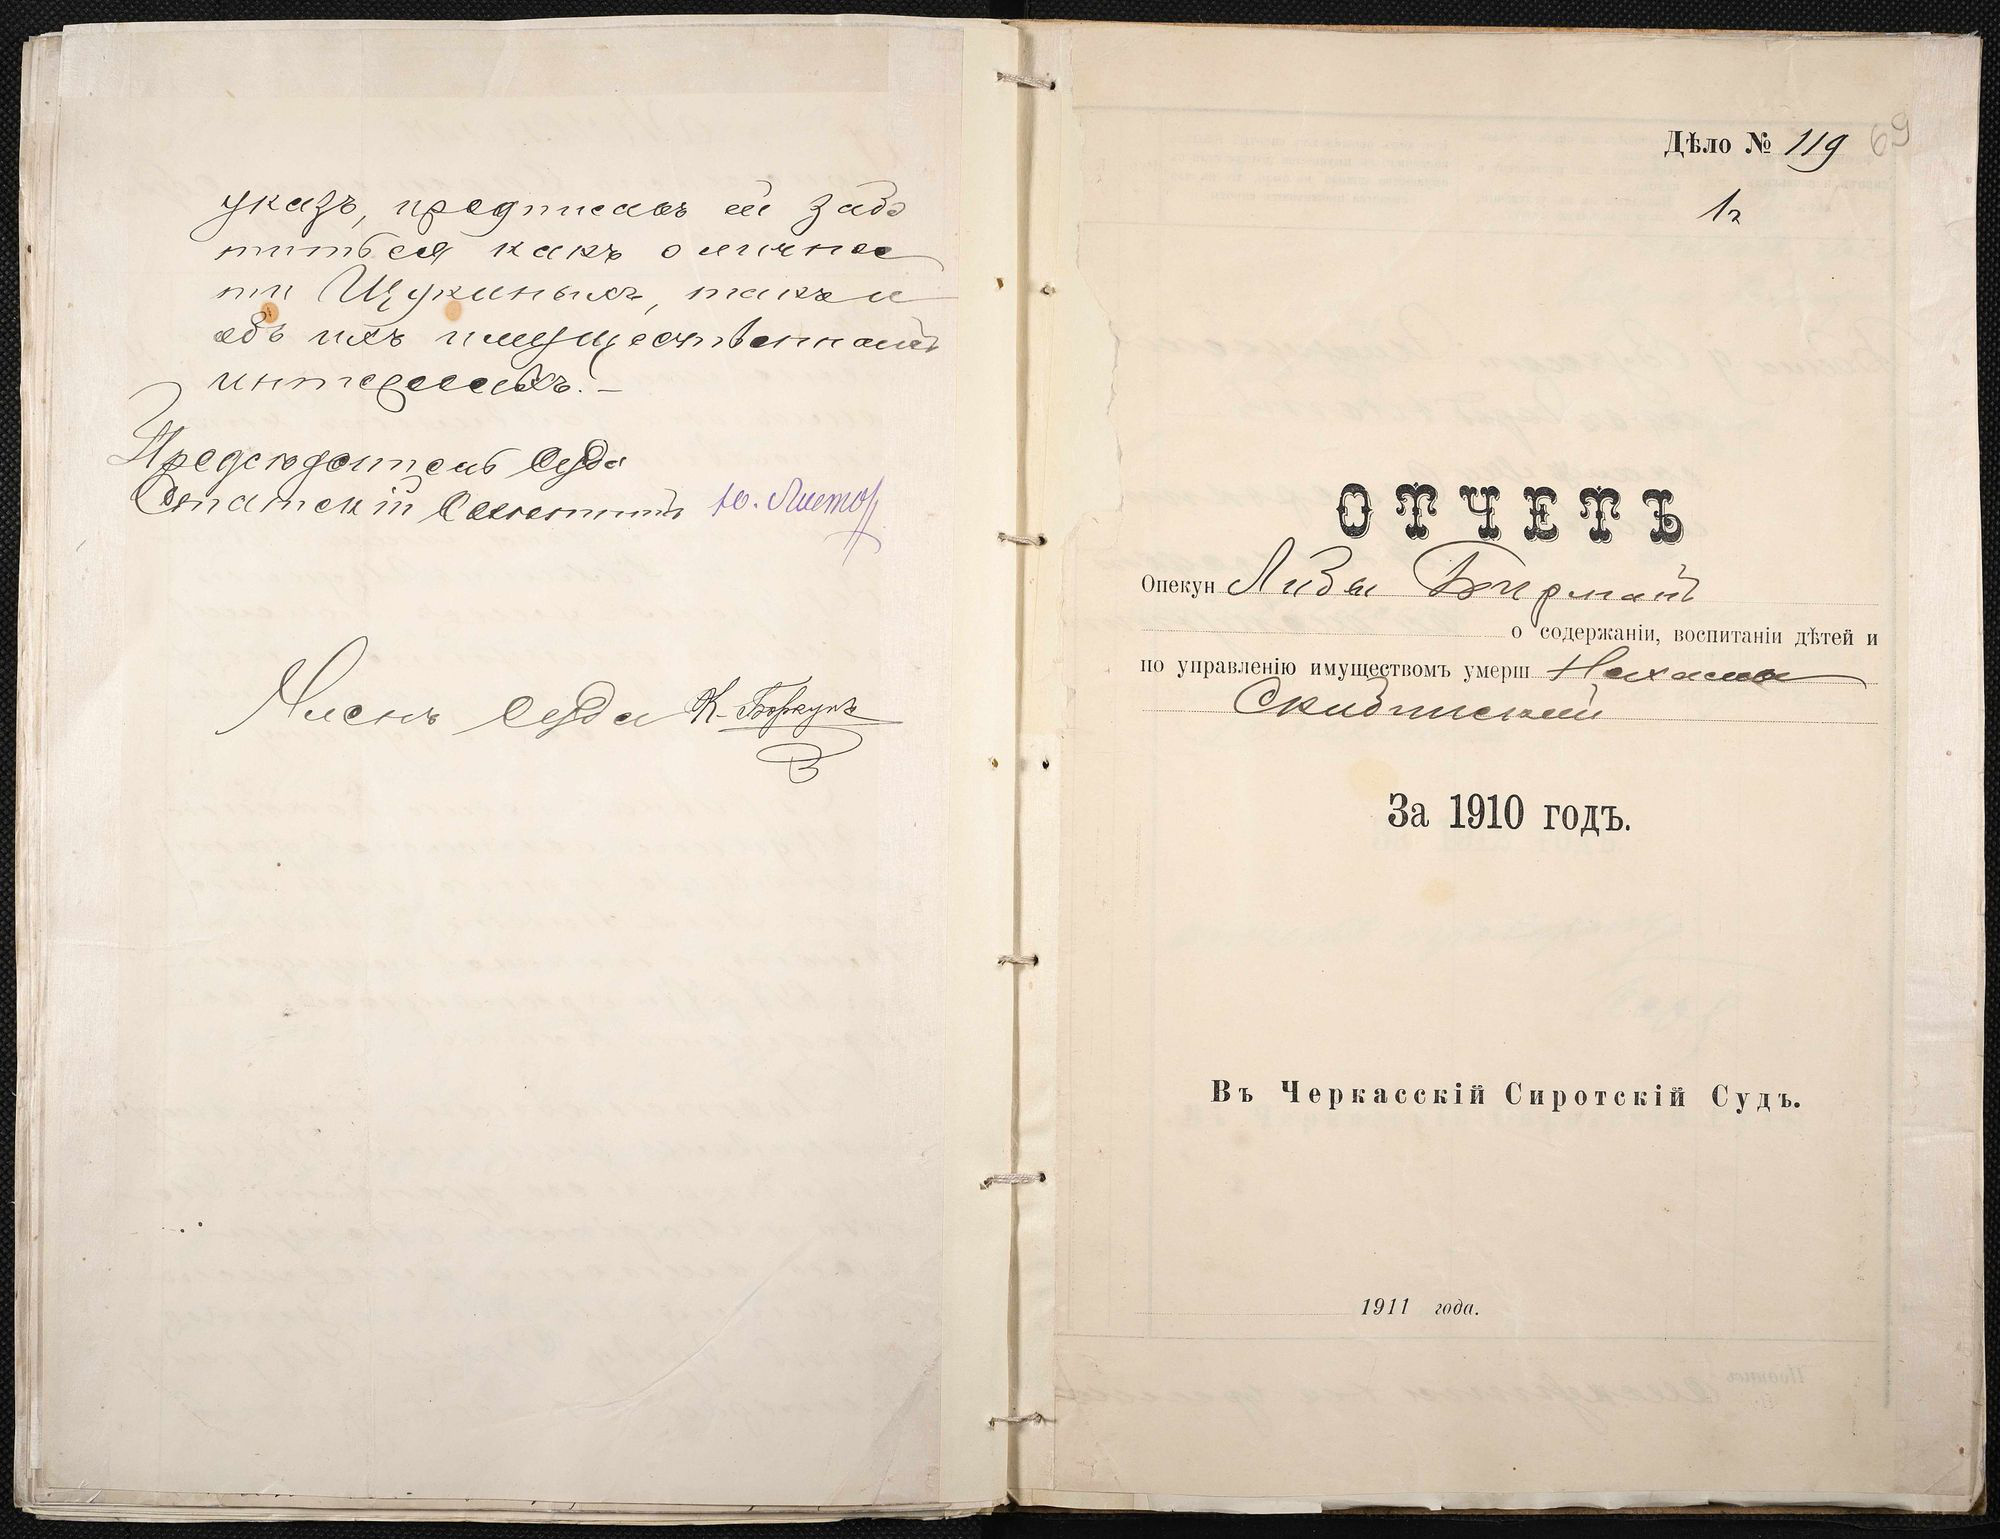 указъ, предписавъ ей забо
титься какъ о личнос
ти Щукиныхъ, такъ и
объ ихъ имущественныхъ
интересахъ. –
Предсѣдатель Суда
Статскій Совѣтникъ Ю. Листов
Членъ Суда К. Боркунъ
Дѣло № 119 69
ОТЧЕТЪ
Опекун Лизы Бирманъ
о содержаніи, воспитаніи дѣтей и
по управленію имуществомъ умерш Нахмана
Скибинскій
За 1910 годъ.
Въ Черкасскій Сиротскій Судъ.
1911 года.